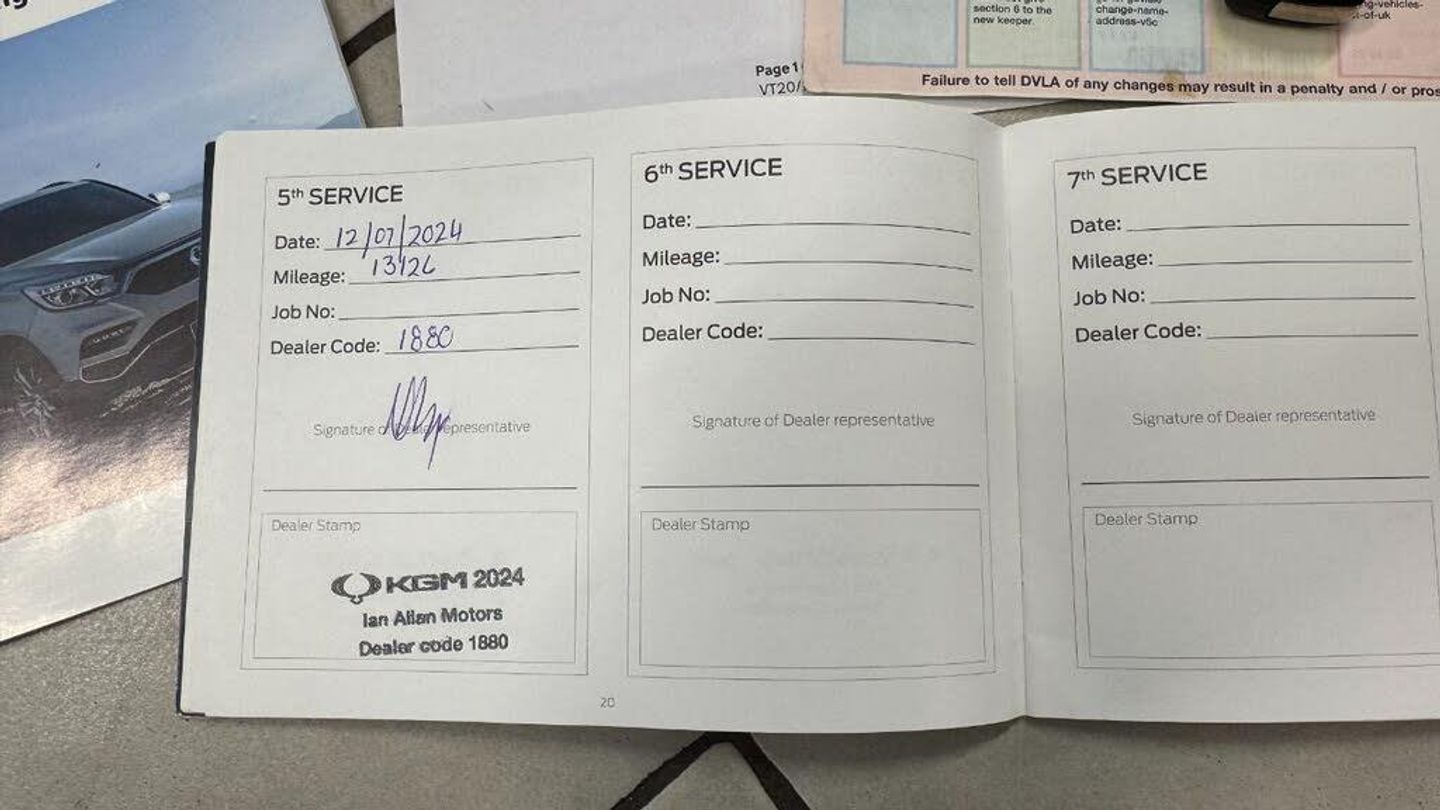 section 6 to the
new keeper
change-name-
address-v5c
ng-vehicles-
of-uk
Page 1
VT20/
Failure to tell DVLA of any changes may result in a penalty and / or pros
5th SERVICE
Date: 12/07/2024
Mileage: 13126
Job No:
Dealer Code: 1880
Signature of Dealer representative
Dealer Stamp
KGM 2024
Ian Allan Motors
Dealer code 1880
6th SERVICE
Date:
Mileage:
Job No:
Dealer Code:
Signature of Dealer representative
Dealer Stamp
20
7th SERVICE
Date:
Mileage:
Job No:
Dealer Code:
Signature of Dealer representative
Dealer Stamp